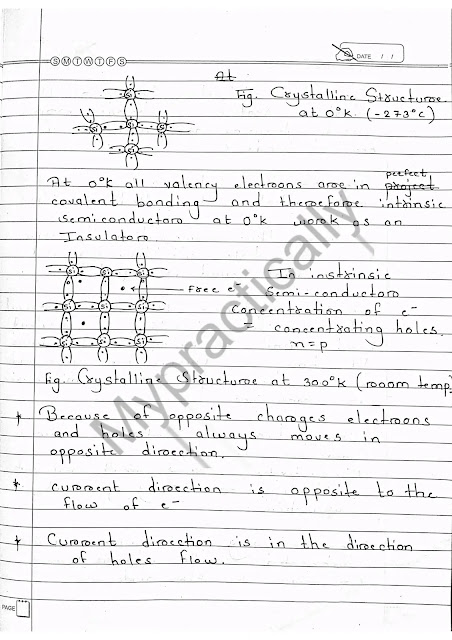 S M T W T F S
DATE / /
At
Fig. Crystalline Structure
at 0°k (-273°c)
Si
Si Si Si
Si
At 0°k all valency electrons are in perfect, project
covalent bonding and therefore intrinsic
semiconductors at 0°k work as an
Insulators
Si Si Si
Si Si Si
Si Si Si
Free e-
In instrinsic
Semi-conductors
Concentration of e-
= concentrating holes.
n=p
Fig. Crystalline Structure at 300°k (room temp)
* Because of opposite charges electrons
and holes always moves in
opposite direction.
* current direction is opposite to the
flow of e-
* Current direction is in the direction
of holes flow.
PAGE
Mypractically